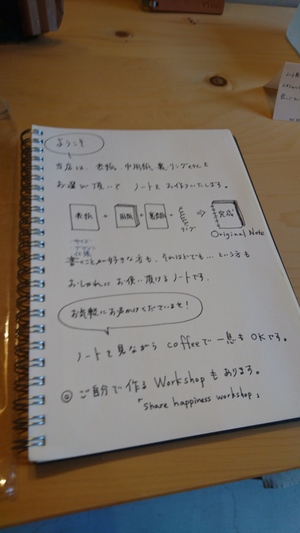 ようこそ
当店は、表紙、中用紙、裏、リングetc.を
お選び頂いて ノートを お作りいたします。
表紙 + 用紙 + 裏表紙 + リング ⇒ 完成
Original Note
書くことが好きな方も、それほどでも…という方も
おしゃれにお使い頂けるノートです。
お気軽にお声かけくださいませ!
ノートを見ながら coffeeで一息も OKです。
◎ ご自分で作る Workshopも あります。
「share happiness workshop」